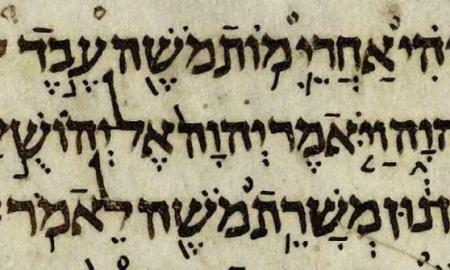 יְהִי אַחֲרֵי מוֹת מֹשֶׁה עֶבֶד
הוָה וַיֹּאמֶר יְהוָה אֶל יְהוֹשֻׁ
נוּן מְשָׁרֵת מֹשֶׁה לֵאמֹר